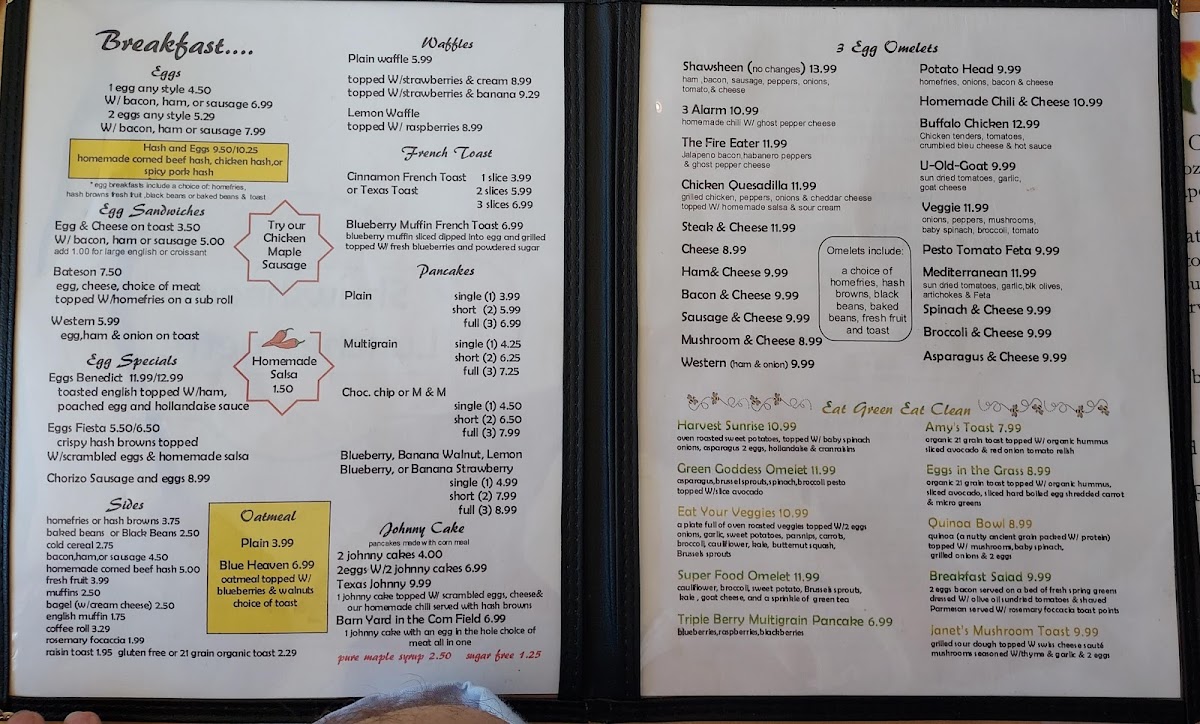 Breakfast....
Eggs
1 egg any style 4.50
W/ bacon, ham, or sausage 6.99
2 eggs any style 5.29
W/ bacon, ham or sausage 7.99
Hash and Eggs 9.50/10.25
homemade corned beef hash, chicken hash,or
spicy pork hash
* egg breakfasts include a choice of: homefries,
hash browns fresh fruit ,black beans or baked beans & toast
Egg Sandwiches
Egg & Cheese on toast 3.50
W/ bacon, ham or sausage 5.00
add 1.00 for large english or croissant
Bateson 7.50
egg, cheese, choice of meat
topped W/homefries on a sub roll
Western 5.99
egg,ham & onion on toast
Try our
Chicken
Maple
Sausage
Homemade
Salsa
1.50
Egg Specials
Eggs Benedict 11.99/12.99
toasted english topped W/ham,
poached egg and hollandaise sauce
Eggs Fiesta 5.50/6.50
crispy hash browns topped
W/scrambled eggs & homemade salsa
Chorizo Sausage and eggs 8.99
Sides
homefries or hash browns 3.75
baked beans or Black Beans 2.50
cold cereal 2.75
bacon,ham,or sausage 4.50
homemade corned beef hash 5.00
fresh fruit 3.99
muffins 2.50
bagel (w/cream cheese) 2.50
english muffin 1.75
coffee roll 3.29
rosemary focaccia 1.99
raisin toast 1.95 gluten free or 21 grain organic toast 2.29
Oatmeal
Plain 3.99
Blue Heaven 6.99
oatmeal topped W/
blueberries & walnuts
choice of toast
Waffles
Plain waffle 5.99
topped W/strawberries & cream 8.99
topped W/strawberries & banana 9.29
Lemon Waffle
topped W/ raspberries 8.99
French Toast
Cinnamon French Toast 1 slice 3.99
or Texas Toast 2 slices 5.99
3 slices 6.99
Blueberry Muffin French Toast 6.99
blueberry muffin sliced dipped into egg and grilled
topped W/ fresh blueberries and powdered sugar
Pancakes
Plain single (1) 3.99
short (2) 5.99
full (3) 6.99
Multigrain single (1) 4.25
short (2) 6.25
full (3) 7.25
Choc. chip or M & M
single (1) 4.50
short (2) 6.50
full (3) 7.99
Blueberry, Banana Walnut, Lemon
Blueberry, or Banana Strawberry
single (1) 4.99
short (2) 7.99
full (3) 8.99
Johnny Cake
pancakes made with corn meal
2 johnny cakes 4.00
2eggs W/2 johnny cakes 6.99
Texas Johnny 9.99
1 johnny cake topped W/ scrambled eggs, cheese&
our homemade chili served with hash browns
Barn Yard in the Corn Field 6.99
1 johnny cake with an egg in the hole choice of
meat all in one
pure maple syrup 2.50 sugar free 1.25
3 Egg Omelets
Shawsheen (no changes) 13.99
ham ,bacon, sausage, peppers, onions,
tomato,& cheese
3 Alarm 10.99
homemade chili W/ ghost pepper cheese
The Fire Eater 11.99
Jalapeno bacon,habanero peppers
& ghost pepper cheese
Chicken Quesadilla 11.99
grilled chicken, peppers, onions & cheddar cheese
topped W/ homemade salsa & sour cream
Steak & Cheese 11.99
Cheese 8.99
Ham& Cheese 9.99
Bacon & Cheese 9.99
Sausage & Cheese 9.99
Mushroom & Cheese 8.99
Western (ham & onion) 9.99
Omelets include:
a choice of
homefries, hash
browns, black
beans, baked
beans, fresh fruit
and toast
Potato Head 9.99
homefries, onions, bacon & cheese
Homemade Chili & Cheese 10.99
Buffalo Chicken 12.99
Chicken tenders, tomatoes,
crumbled bleu cheese & hot sauce
U-Old-Goat 9.99
sun dried tomatoes, garlic,
goat cheese
Veggie 11.99
onions, peppers, mushrooms,
baby spinach, broccoli, tomato
Pesto Tomato Feta 9.99
Mediterranean 11.99
sun dried tomatoes, garlic,blk olives,
artichokes & Feta
Spinach & Cheese 9.99
Broccoli & Cheese 9.99
Asparagus & Cheese 9.99
Eat Green Eat Clean
Harvest Sunrise 10.99
oven roasted sweet potatoes, topped W/ baby spinach
onions, asparagus 2 eggs, hollandaise & cranraisins
Green Goddess Omelet 11.99
asparagus,brussel sprouts,spinach,broccoli pesto
topped W/slice avocado
Eat Your Veggies 10.99
a plate full of oven roasted veggies topped W/2 eggs
onions, garlic, sweet potatoes, parsnips, carrots,
broccoli, cauliflower, kale, butternut squash,
Brussels sprouts
Super Food Omelet 11.99
cauliflower, broccoli, sweet potato, Brussels sprouts,
kale , goat cheese, and a sprinkle of green tea
Triple Berry Multigrain Pancake 6.99
blueberries,raspberries,blackberries
Amy's Toast 7.99
organic 21 grain toast topped W/ organic hummus
sliced avocado & red onion tomato relish
Eggs in the Grass 8.99
organic 21 grain toast topped W/ organic hummus,
sliced avocado, sliced hard boiled egg shredded carrot
& micro greens
Quinoa Bowl 8.99
quinoa (a nutty ancient grain packed W/ protein)
topped W/ mushroom,baby spinach,
grilled onions & 2 eggs
Breakfast Salad 9.99
2 eggs bacon served on a bed of fresh spring greens
dressed W/ olive oil sundried tomatoes & shaved
Parmesan served W/ rosemary foccacia toast points
Janet's Mushroom Toast 9.99
grilled sour dough topped W swiss cheese sauté
mushrooms seasoned W/thyme & garlic & 2 eggs